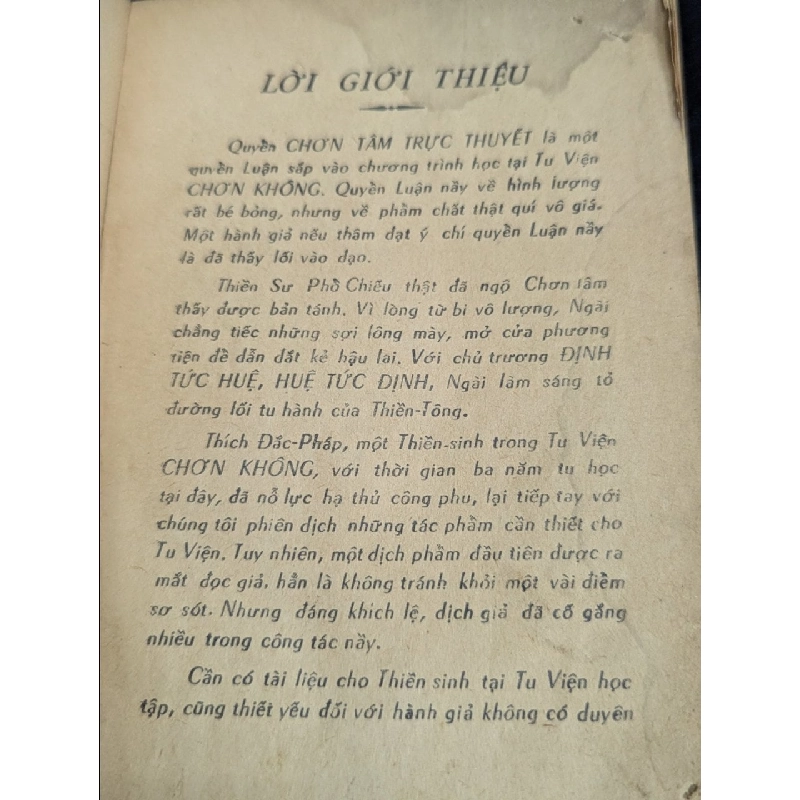 LỜI GIỚI THIỆU
Quyền CHƠN TÂM TRỰC THUYẾT là một
quyền Luận sắp vào chương trình học tại Tu Viện
CHƠN KHÔNG. Quyền Luận nầy về hình lượng
rất bé bỏng, nhưng về phầm chất thật quí vô giá.
Một hành giả nếu thâm đạt ý chí quyền Luận nầy
là đã thấy lối vào đạo.
Thiền Sư Phồ Chiếu thật đã ngộ Chơn tâm
thấy được bản tánh. Vì lòng từ bi vô lượng, Ngài
chẳng tiếc những sợi lông mày, mở cửa phương
tiện đề dẫn dắt kẻ hậu lai. Với chủ trương ĐỊNH
TỨC HUỆ, HUỆ TỨC ĐỊNH, Ngài làm sáng tỏ
đường lối tu hành của Thiền-Tông.
Thích Đắc-Pháp, một Thiền-sinh trong Tu Viện
CHƠN KHÔNG, với thời gian ba năm tu học
tại đây, đã nỗ lực hạ thủ công phu, lại tiếp tay với
chúng tôi phiên dịch những tác phầm cần thiết cho
Tu Viện. Tuy nhiên, một dịch phầm đầu tiên được ra
mắt đọc giả, hẳn là không tránh khỏi một vài điềm
sơ sót. Nhưng đáng khích lệ, dịch giả đã cố gắng
nhiều trong công tác nầy.
Cần có tài liệu cho Thiền sinh tại Tu Viện học
tập, cũng thiết yếu đối với hành giả không có duyên